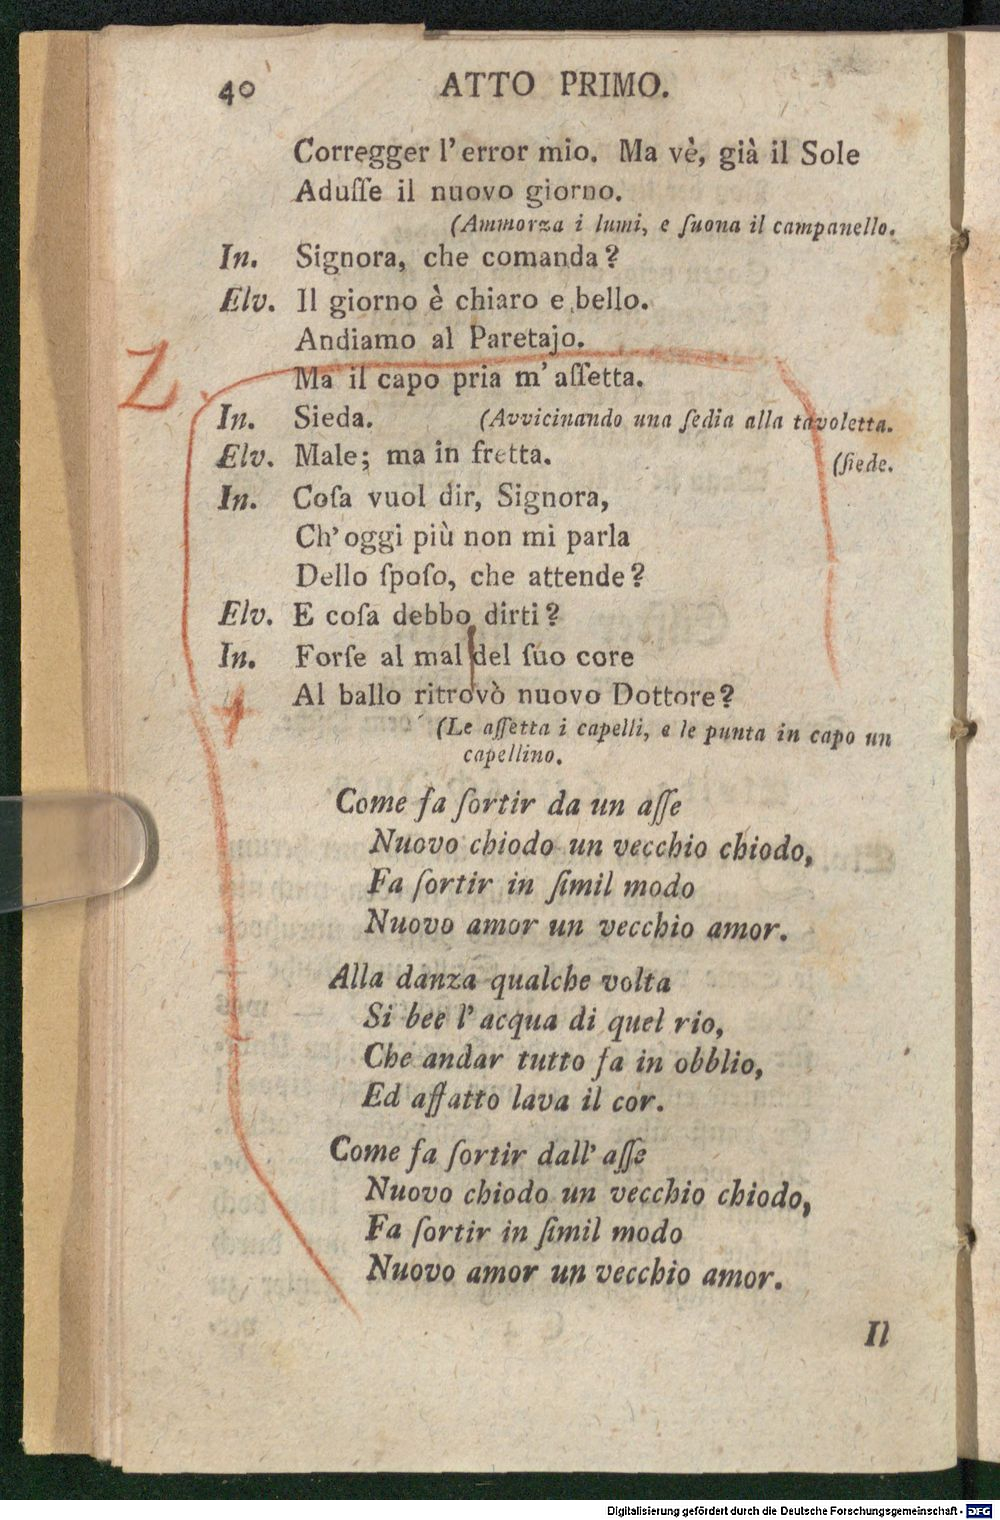 40 ATTO PRIMO.
Corregger l'error mio. Ma vè, già il Sole
Aduſſe il nuovo giorno.
(Ammorza i lumi, e ſuona il campanello.
In. Signora, che comanda?
Elv. Il giorno è chiaro e bello.
Andiamo al Paretajo.
Ma il capo pria m'aſſetta.
Z
In. Sieda. (Avvicinando una ſedia alla tavoletta.
Elv. Male; ma in fretta. (ſiede.
In. Coſa vuol dir, Signora,
Ch'oggi più non mi parla
Dello ſpoſo, che attende?
Elv. E coſa debbo dirti?
In. Forſe al mal del ſuo core
Al ballo ritrovò nuovo Dottore?
(Le aſſetta i capelli, e le punta in capo un
capellino.
Come fa ſortir da un aſſe
Nuovo chiodo un vecchio chiodo,
Fa ſortir in ſimil modo
Nuovo amor un vecchio amor.
Alla danza qualche volta
Si bee l'acqua di quel rio,
Che andar tutto fa in obblio,
Ed affatto lava il cor.
Come fa ſortir dall' aſſe
Nuovo chiodo un vecchio chiodo,
Fa ſortir in ſimil modo
Nuovo amor un vecchio amor.
Il
Digitalisierung gefördert durch die Deutsche Forschungsgemeinschaft - DFG